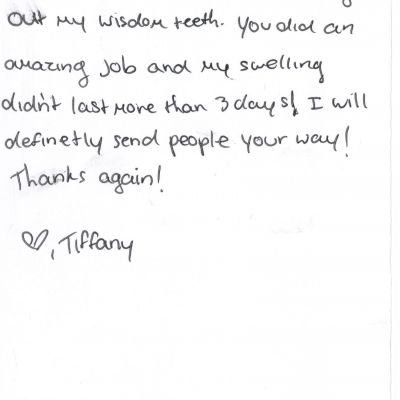 out my wisdom teeth. You did an
amazing job and my swelling
didn't last more than 3 days! I will
definetly send people your way!
Thanks again!
♡, Tiffany